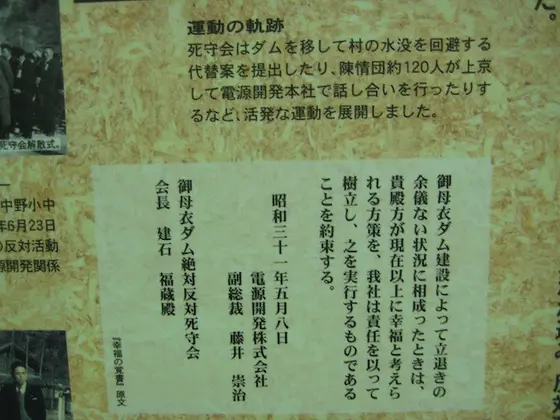 た。
運動の軌跡
死守会はダムを移して村の水没を回避する
代替案を提出したり、陳情団約120人が上京
して電源開発本社で話し合いを行ったりす
るなど、活発な運動を展開しました。
死守会解散式。
中野小中
年6月23日
の反対活動
源開発関係
御母衣ダム建設によって立退きの
余儀ない状況に相成ったときは、
貴殿方が現在以上に幸福と考えら
れる方策を、我社は責任を以って
樹立し、之を実行するものである
ことを約束する。
昭和三十一年五月八日
電源開発株式会社
副総裁 藤井 崇治
御母衣ダム絶対反対死守会
会長 建石 福蔵殿
『幸福の覚書』原文